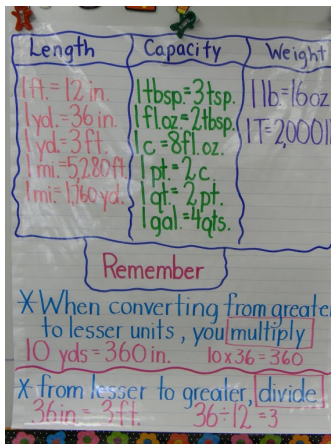 Length
Capacity
Weight
1 ft. = 12 in.
1 yd. = 36 in.
1 yd. = 3 ft.
1 mi. = 5,280 ft.
1 mi. = 1,760 yd.
1 tbsp. = 3 tsp.
1 fl. oz. = 2 tbsp.
1 c = 8 fl. oz.
1 pt. = 2 c.
1 qt. = 2 pt.
1 gal. = 4 qts.
1 lb. = 16 oz
1 T = 2,000 l
Remember
*When converting from greate
to lesser units, you multiply
10 yds = 360 in. 10 x 36 = 360
* from lesser to greater, divide
36 in = 3 ft. 36 ÷ 12 = 3